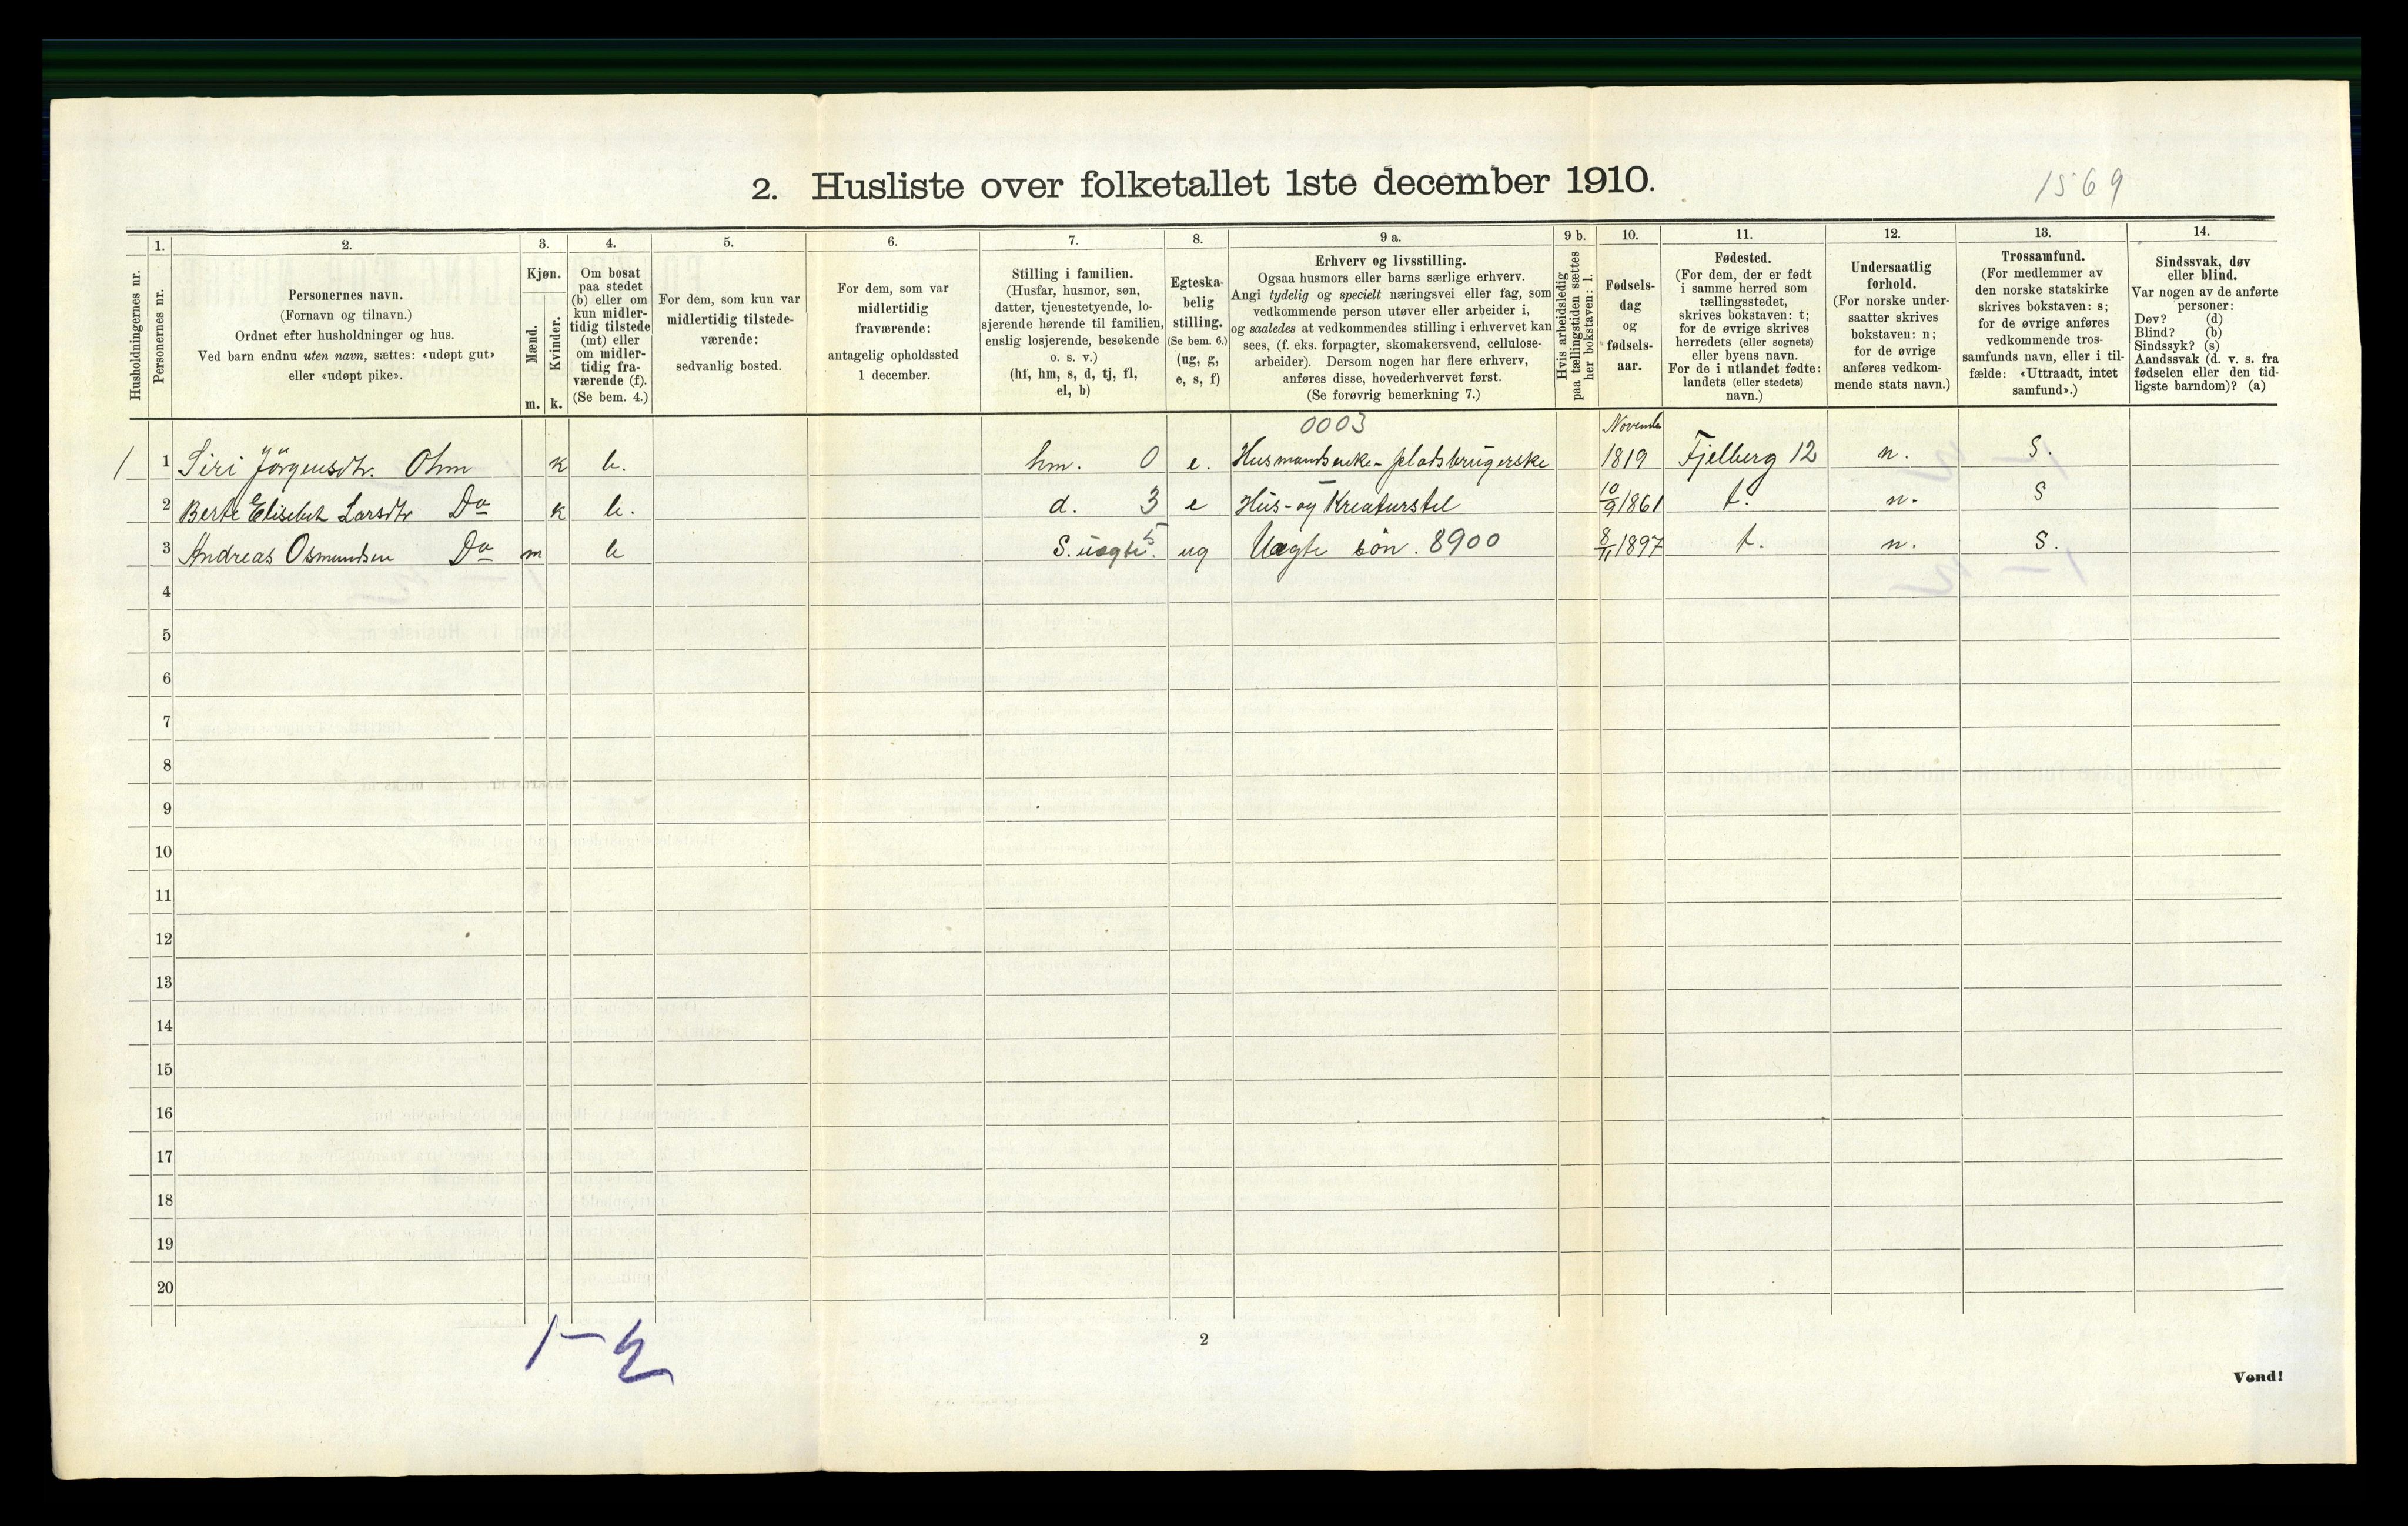 2. Husliste over folketallet 1ste december 1910.
1569
Husholdningernes nr.
1.
Personernes nr.
2.
Personernes navn.
(Fornavn og tilnavn.)
Ordnet efter husholdninger og hus.
Ved barn endnu uten navn, sættes: «udøpt gut»
eller «udøpt pike».
3.
Kjøn.
Mænd.
Kvinder.
m. k.
4.
Om bosat
paa stedet
(b) eller om
kun midler-
tidig tilstede
(mt) eller
om midler-
tidig fra-
værende (f).
(Se bem. 4.)
5.
For dem, som kun var
midlertidig tilstede-
værende:
sedvanlig bosted.
6.
For dem, som var
midlertidig
fraværende:
antagelig opholdssted
1 december.
7.
Stilling i familien.
(Husfar, husmor, søn,
datter, tjenestetyende, lo-
sjerende hørende til familien,
enslig losjerende, besøkende
o. s. v.)
(hf, hm, s, d, tj, fl,
el, b)
8.
Egteska-
belig
stilling.
(Se bem. 6.)
(ug, g,
e, s, f)
9 a.
Erhverv og livsstilling.
Ogsaa husmors eller barns særlige erhverv.
Angi tydelig og specielt næringsvei eller fag, som
vedkommende person utøver eller arbeider i,
og saaledes at vedkommendes stilling i erhvervet kan
sees, (f. eks. forpagter, skomakersvend, cellulose-
arbeider). Dersom nogen har flere erhverv,
anføres disse, hovederhvervet først.
(Se forøvrig bemerkning 7.)
9 b.
Hvis arbeidsledig
paa tællingstiden sættes
her bokstaven: l.
10.
Fødsels-
dag
og
fødsels-
aar.
11.
Fødested.
(For dem, der er født
i samme herred som
tællingsstedet,
skrives bokstaven: t;
for de øvrige skrives
herredets (eller sognets)
eller byens navn.
For de i utlandet fødte:
landets (eller stedets)
navn.)
12.
Undersaatlig
forhold.
(For norske under-
saatter skrives
bokstaven: n;
for de øvrige
anføres vedkom-
mende stats navn.)
13.
Trossamfund.
(For medlemmer av
den norske statskirke
skrives bokstaven: s;
for de øvrige anføres
vedkommende tros-
samfunds navn, eller i til-
fælde: «Uttraadt, intet
samfund».)
14.
Sindssvak, døv
eller blind.
Var nogen av de anførte
personer:
Døv? (d)
Blind? (b)
Sindssyk? (s)
Aandssvak (d. v. s. fra
fødselen eller den tid-
ligste barndom)? (a)
0003 Novemb
1 1 Siri Jörgensdtr. Ohm k b. hm. 0 e. Husmandsenke - pladsbrugerske 1819 Fjelberg 12 n. S.
2 Berte Elisebet Larsdtr Do k b. d. 3 e Hus- og Kreaturstel 10/9 1861 t. n. S
3 Andreas Osmundsen Do m b S. uægte. 5 ug Uægte søn. 8900 8/11 1897 t. n. S.
4
5
6
7
8
9
10
11
12
13
14
15
16
17
18
19
20
1-2
2
Vend!